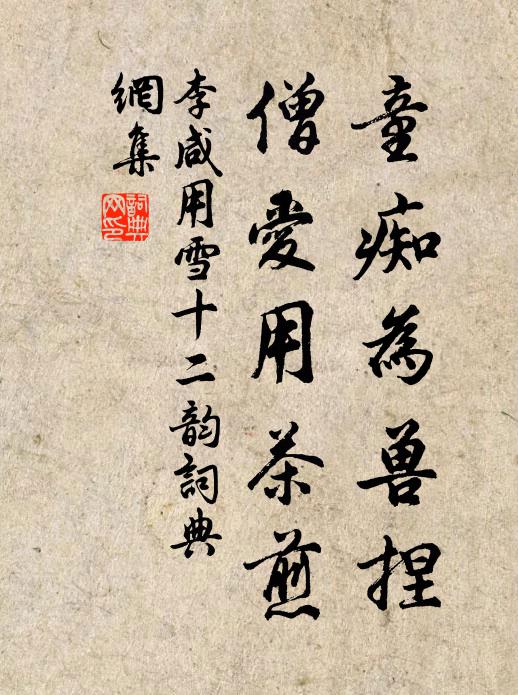 童痴為兽捏
僧愛用茶煎
李咸用雪十二韵詞典
網集
詞典
网印